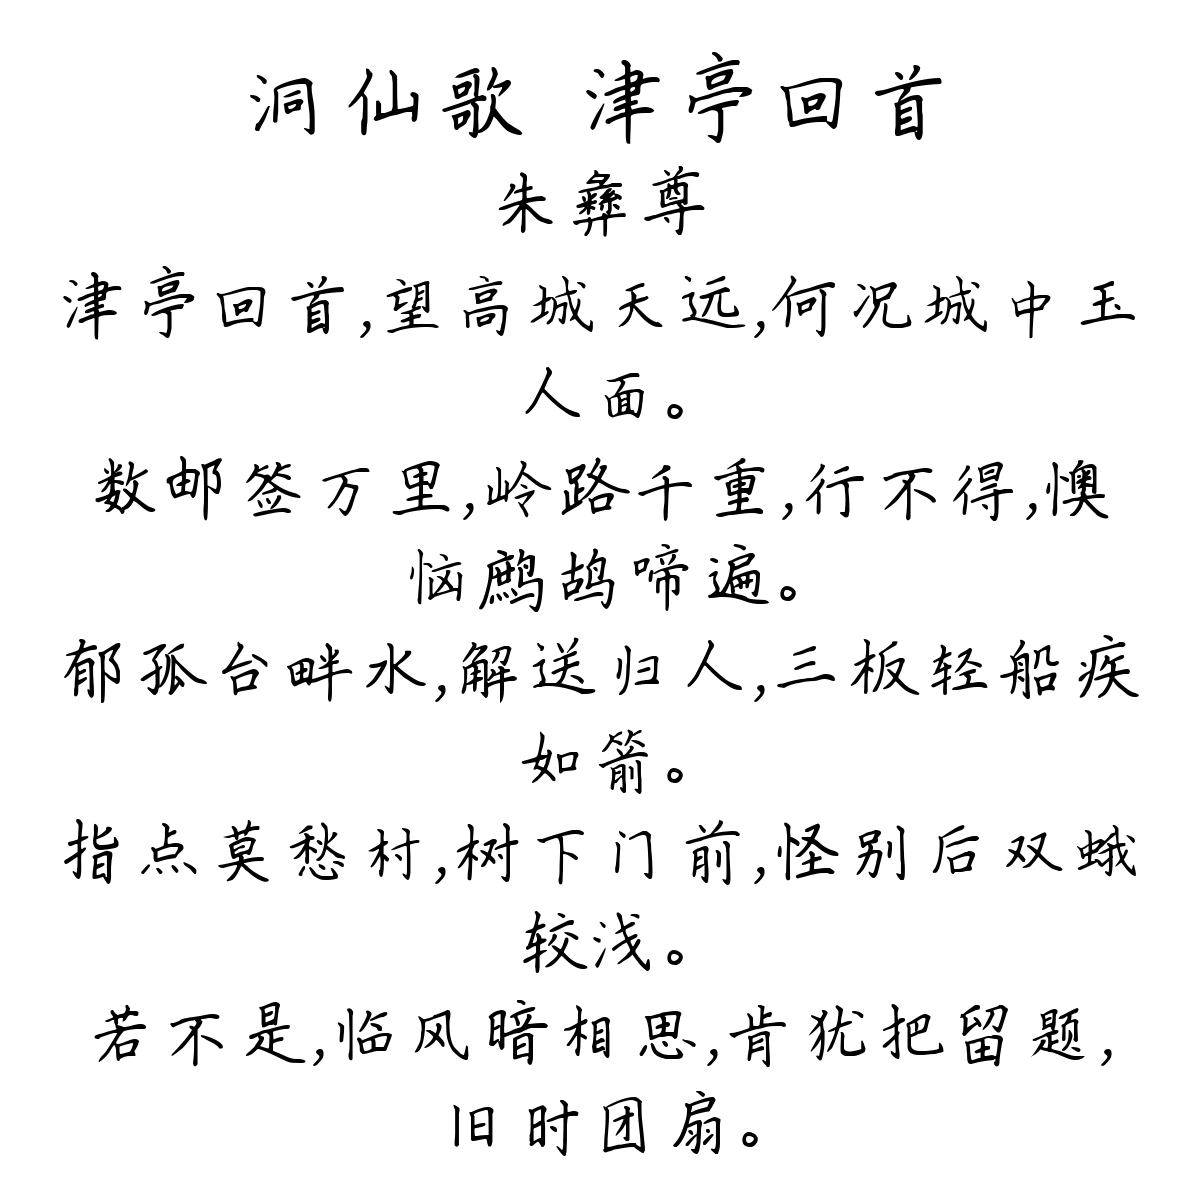 洞仙歌 津亭回首
朱彝尊
津亭回首,望高城天远,何况城中玉
人面。
数邮签万里,岭路千重,行不得,懊
恼鹧鸪啼遍。
郁孤台畔水,解送归人,三板轻船疾
如箭。
指点莫愁村,树下门前,怪别后双蛾
较浅。
若不是,临风暗相思,肯犹把留题,
旧时团扇。